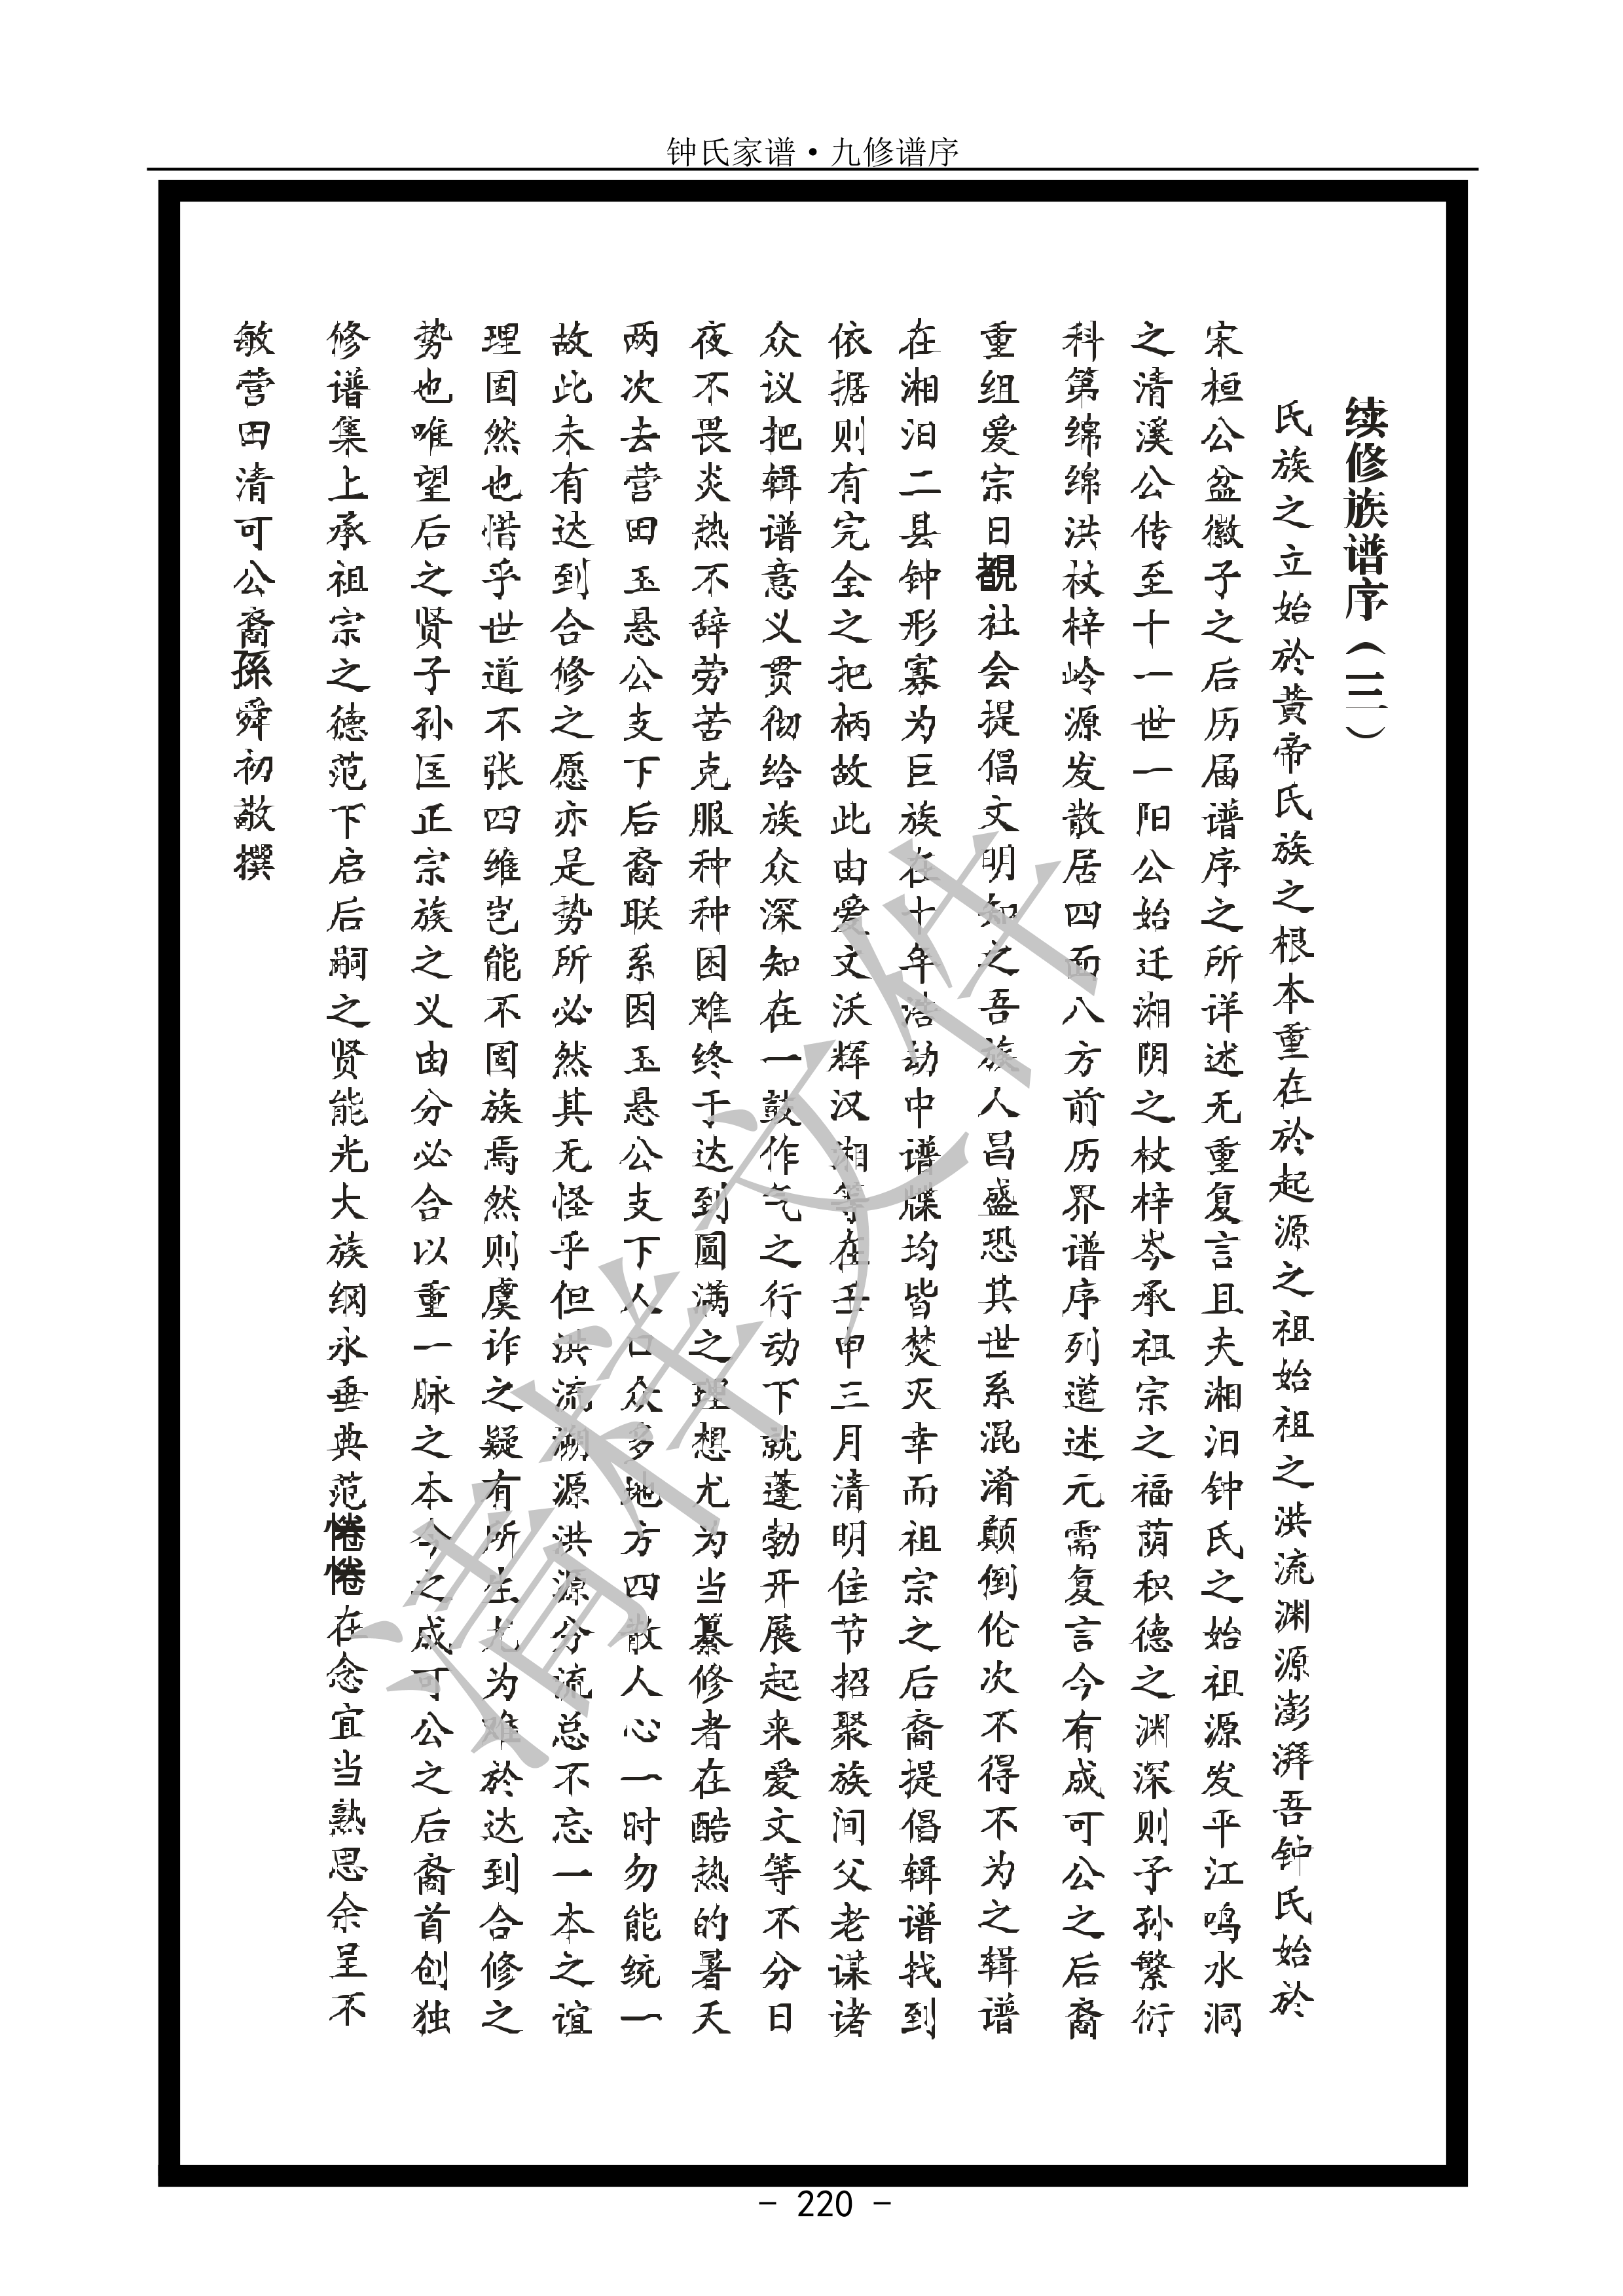 钟氏家谱·九修谱序
续修族谱序（三）
氏族之立始於黄帝氏族之根本重在於起源之祖始祖之洪流渊源澎湃吾钟氏始於
宋桓公盆徽子之后历届谱序之所详述无重复言且夫湘汨钟氏之始祖源发平江鸣水洞
之清溪公传至十一世一阳公始迁湘阴之杖梓岑承祖宗之福荫积德之渊深则子孙繁衍
科第绵绵洪杖梓岭源发散居四面八方前历界谱序列道述元需复言今有成可公之后裔
重组爱宗日覩社会提倡文明知之吾族人昌盛恐其世系混淆颠倒伦次不得不为之辑谱
在湘汨二县钟形寡为巨族在十年浩劫中谱牒均皆焚灭幸而祖宗之后裔提倡辑谱找到
依据则有完全之把柄故此由爱文沃辉汉湘等在壬申三月清明佳节招聚族间父老谋诸
众议把辑谱意义贯彻给族众深知在一鼓作气之行动下就蓬勃开展起来爱文等不分日
夜不畏炎热不辞劳苦克服种种困难终于达到圆满之理想尤为当纂修者在酷热的暑天
两次去营田玉悬公支下后裔联系因玉悬公支下人口众多地方四散人心一时勿能统一
故此未有达到合修之愿亦是势所必然其无怪乎但洪流溯源洪源分流总不忘一本之谊
理固然也惜乎世道不张四维岂能不固族焉然则虞诈之疑有所生尤为难於达到合修之
势也唯望后之贤子孙匡正宗族之义由分必合以重一脉之本今之成可公之后裔首创独
修谱集上承祖宗之德范下启后嗣之贤能光大族纲永垂典范惓惓在念宜当熟思余呈不
敏营田清可公裔孫舜初敬撰
清样文件
- 220 -